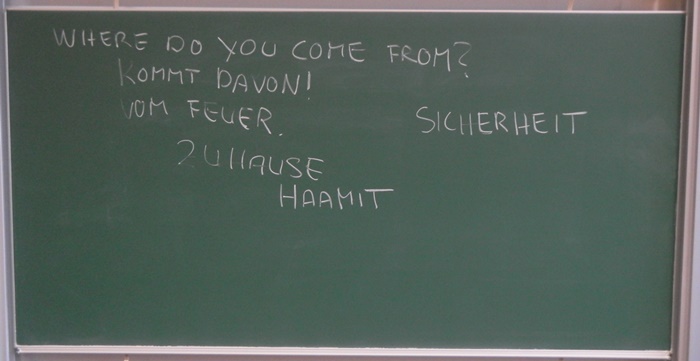 WHERE DO YOU COME FROM?
KOMMT DAVON!
VOM FEUER.
SICHERHEIT
ZUHAUSE
HAAMIT